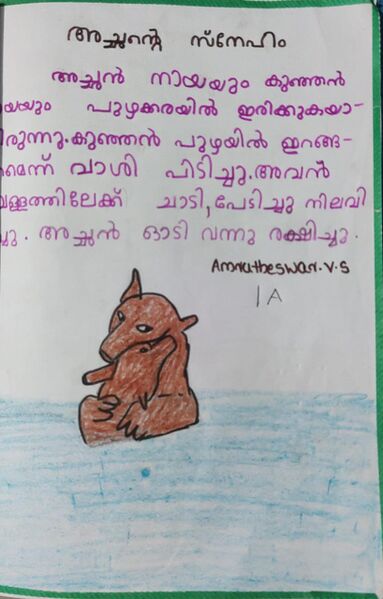 അച്ഛന്റെ സ്നേഹം
അച്ഛൻ നായയും കുഞ്ഞൻ
യയും പുഴക്കരയിൽ ഇരിക്കുകയാ-
രുന്നു. കുഞ്ഞൻ പുഴയിൽ ഇറങ്ങ-
മെന്ന് വാശി പിടിച്ചു. അവൻ
ള്ളത്തിലേക്ക് ചാടി, പേടിച്ചു നിലവി
ച്ചു. അച്ഛൻ ഓടി വന്നു രക്ഷിച്ചു.
Amrutheswar.V.S
1A